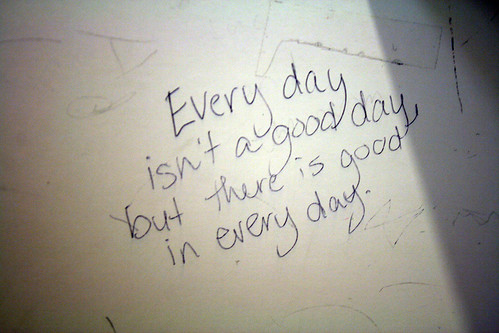 Every day
isn't a good day,
but there is good
in every day.